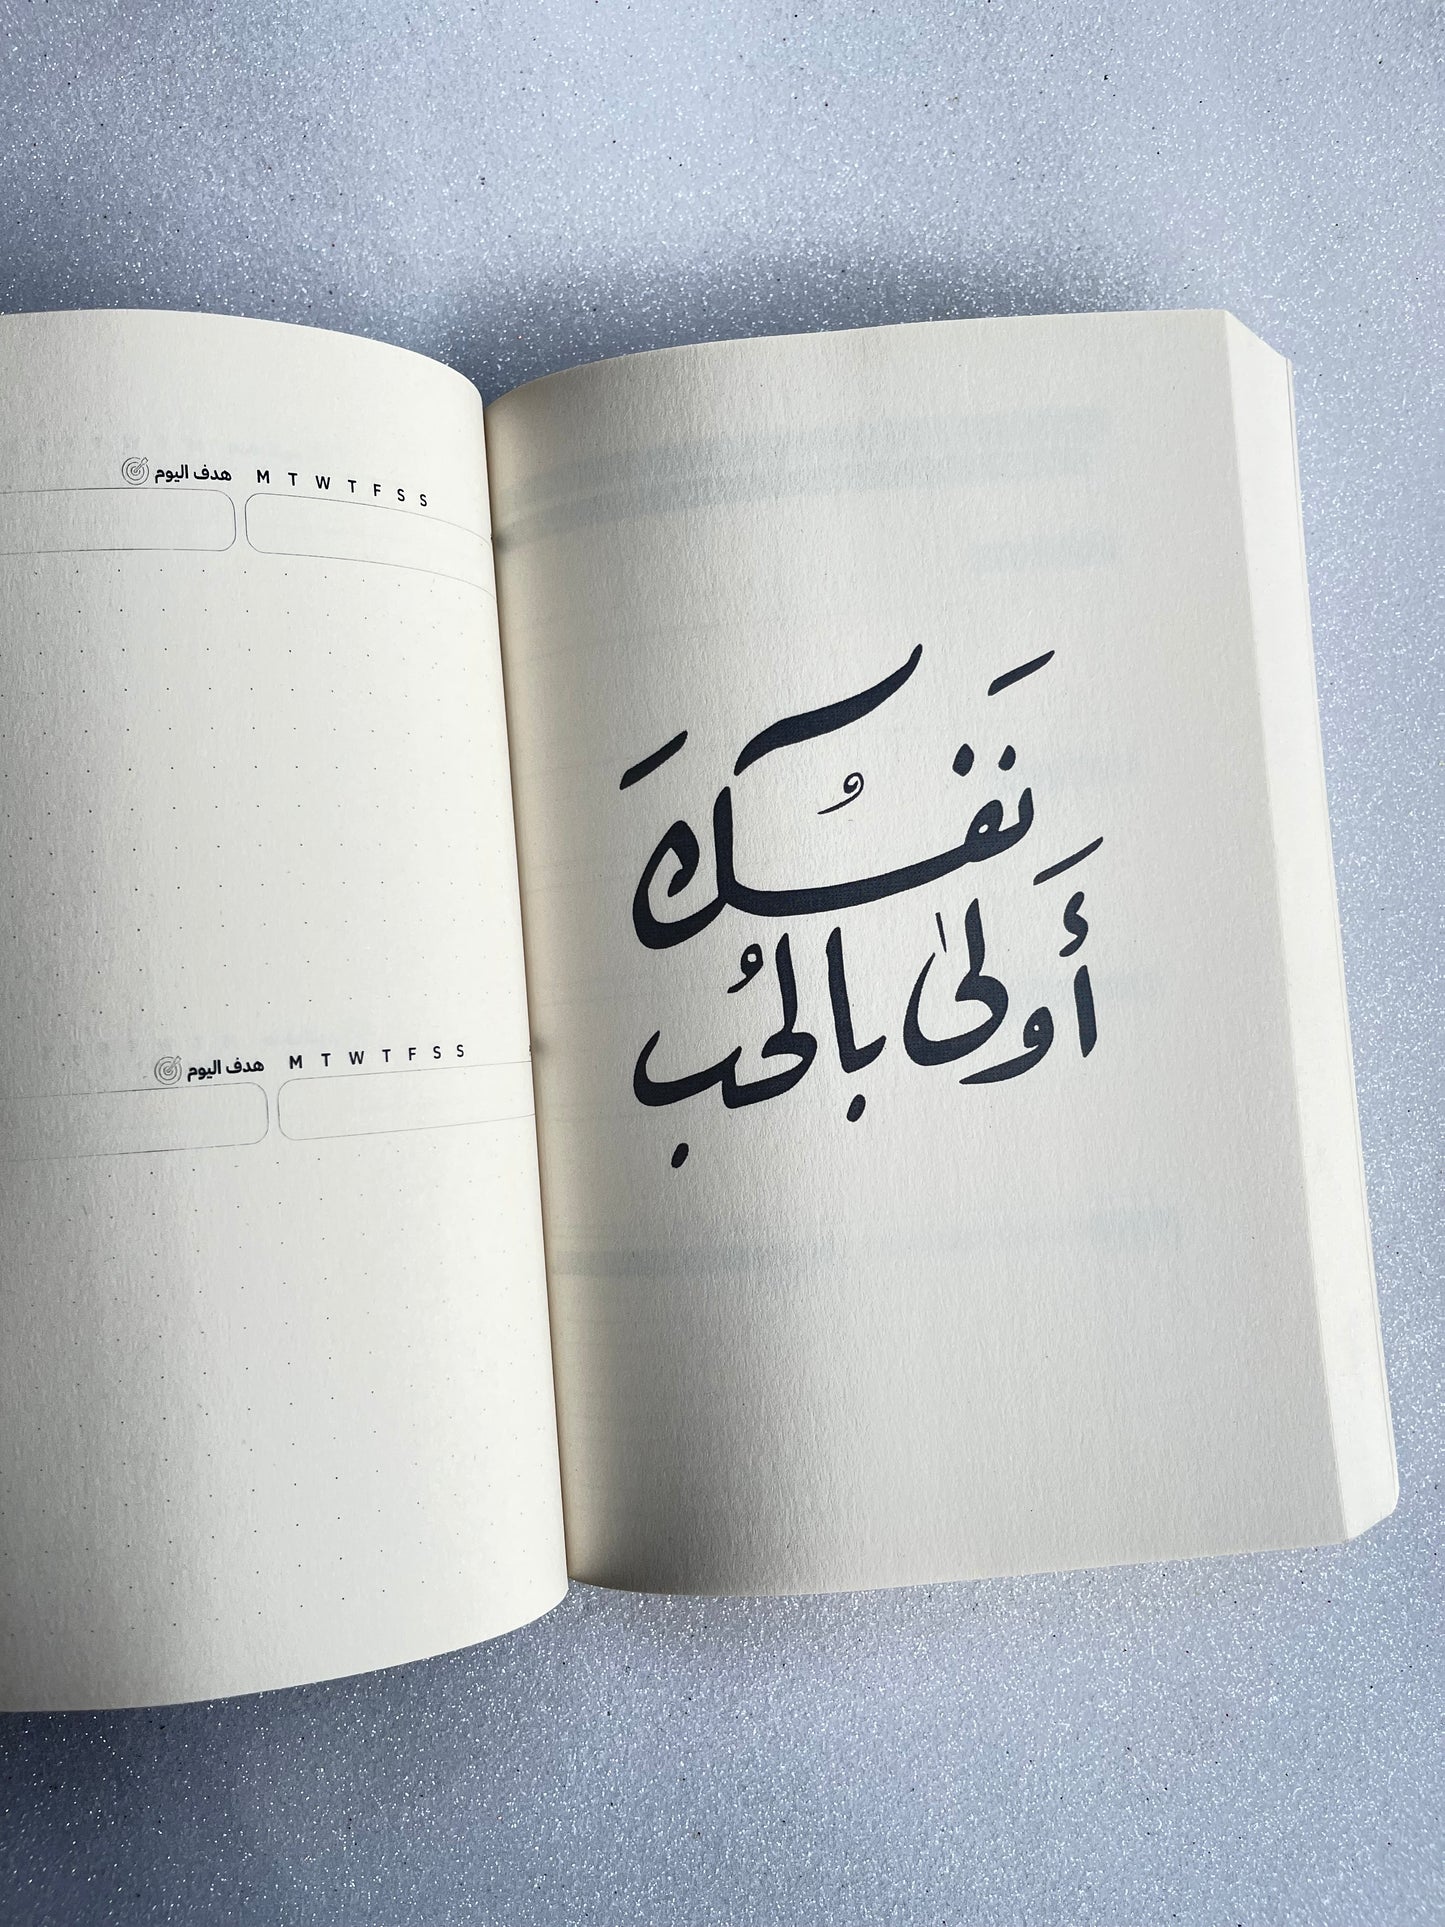 هدف اليوم M T W T F S S
هدف اليوم M T W T F S S
نَفسُكَ
أَولىٰ بالحُب